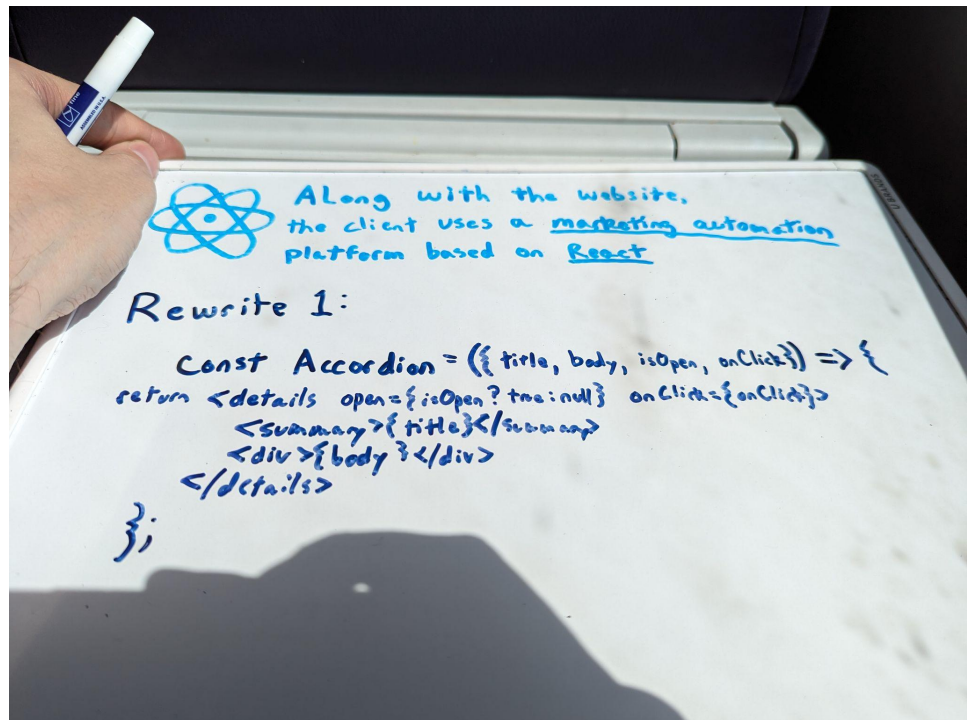 ALong with the website,
the client uses a marketing automation
platform based on React
Rewrite 1:
const Accordion = ({ title, body, isOpen, onClick}) => {
return <details open={isOpen? true:null} onClick={onClick}>
<summary>{title}</summary>
<div>{body}</div>
</details>
};
ASSEMBLED IN U.S.A.
QUARTET